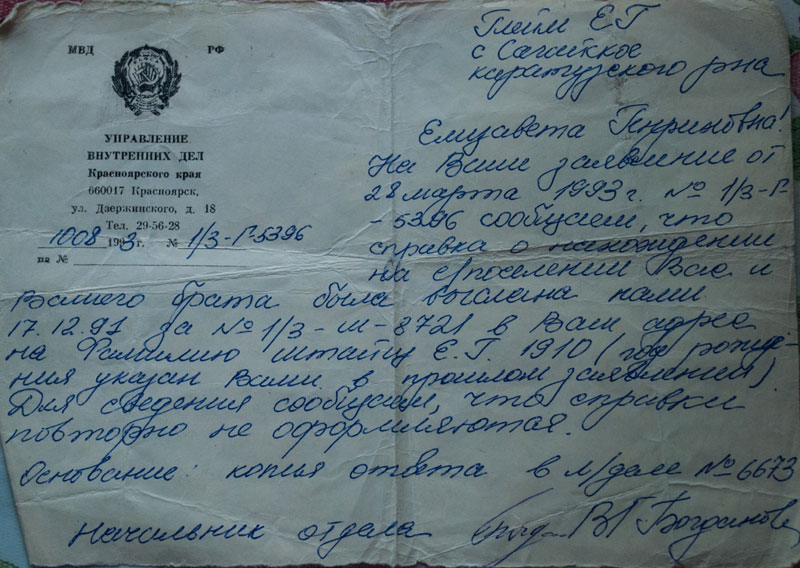 МВД РФ
УПРАВЛЕНИЕ
ВНУТРЕННИХ ДЕЛ
Красноярского края
660017 Красноярск,
ул. Дзержинского, д. 18
Тел. 29-56-28
1008 1993г. № 1/3-Г-5396
на №
Глейм Е Г
с Сагайское
каратузского рна
Елизавета Генриховна!
На Ваше заявление от
28 марта 1993 г. № 1/3-Г-
-5396 сообщаем, что
справка о нахождении
на спецпоселении Вас и
Вашего брата была выслана нами
17.12.91 за № 1/3-Ш-8721 в Ваш адрес
на Фамилию Штайц Е.Г. 1910 (год рожде-
ния указан Вами в прошлом заявлении)
Для сведения сообщаем, что справки
повторно не оформляются.
Основание: копия ответа в л/деле № 6673
Начальник отдела В Г Богданов